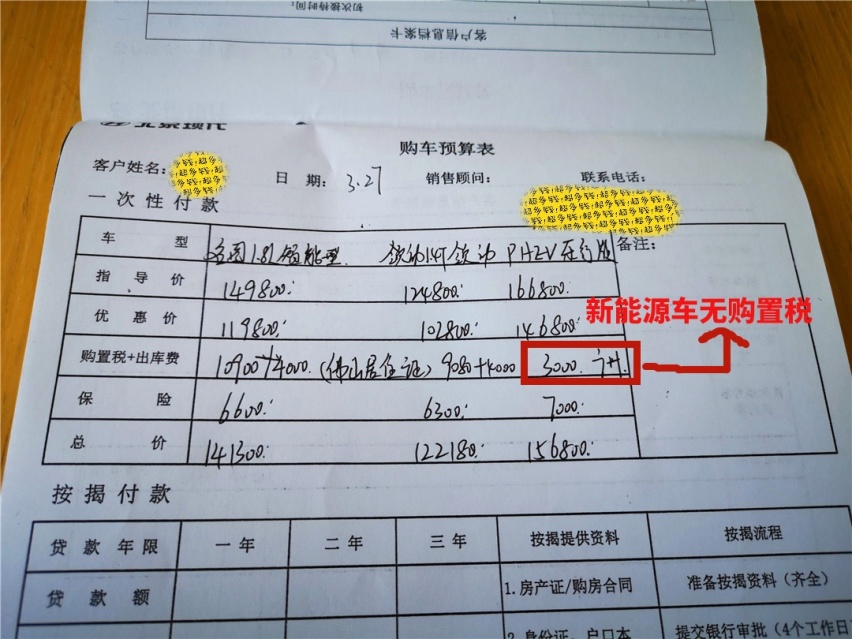 初次接待时间：
客户信息档案卡
北京现代
购车预算表
客户姓名： 日 期： 3.27 销售顾问： 联系电话：
一次性付款
车 型 名图1.8L智能型 领动1.4T 领动 PHEV 备注：
指 导 价 149800. 124800. 166800.
优 惠 价 119800. 102800. 146800.
新能源车无购置税
购置税+出库费 10900+4000. (佛山居住证) 9080+4000 3000.
保 险 6600. 6300. 7000.
总 价 141300. 122180. 156800.
按揭付款
贷 款 年 限 一 年 二 年 三 年 按揭提供资料 按揭流程
贷 款 额 1.房产证/购房合同 准备按揭资料（齐全）
2.身份证、户口本 提交银行审批（4个工作日